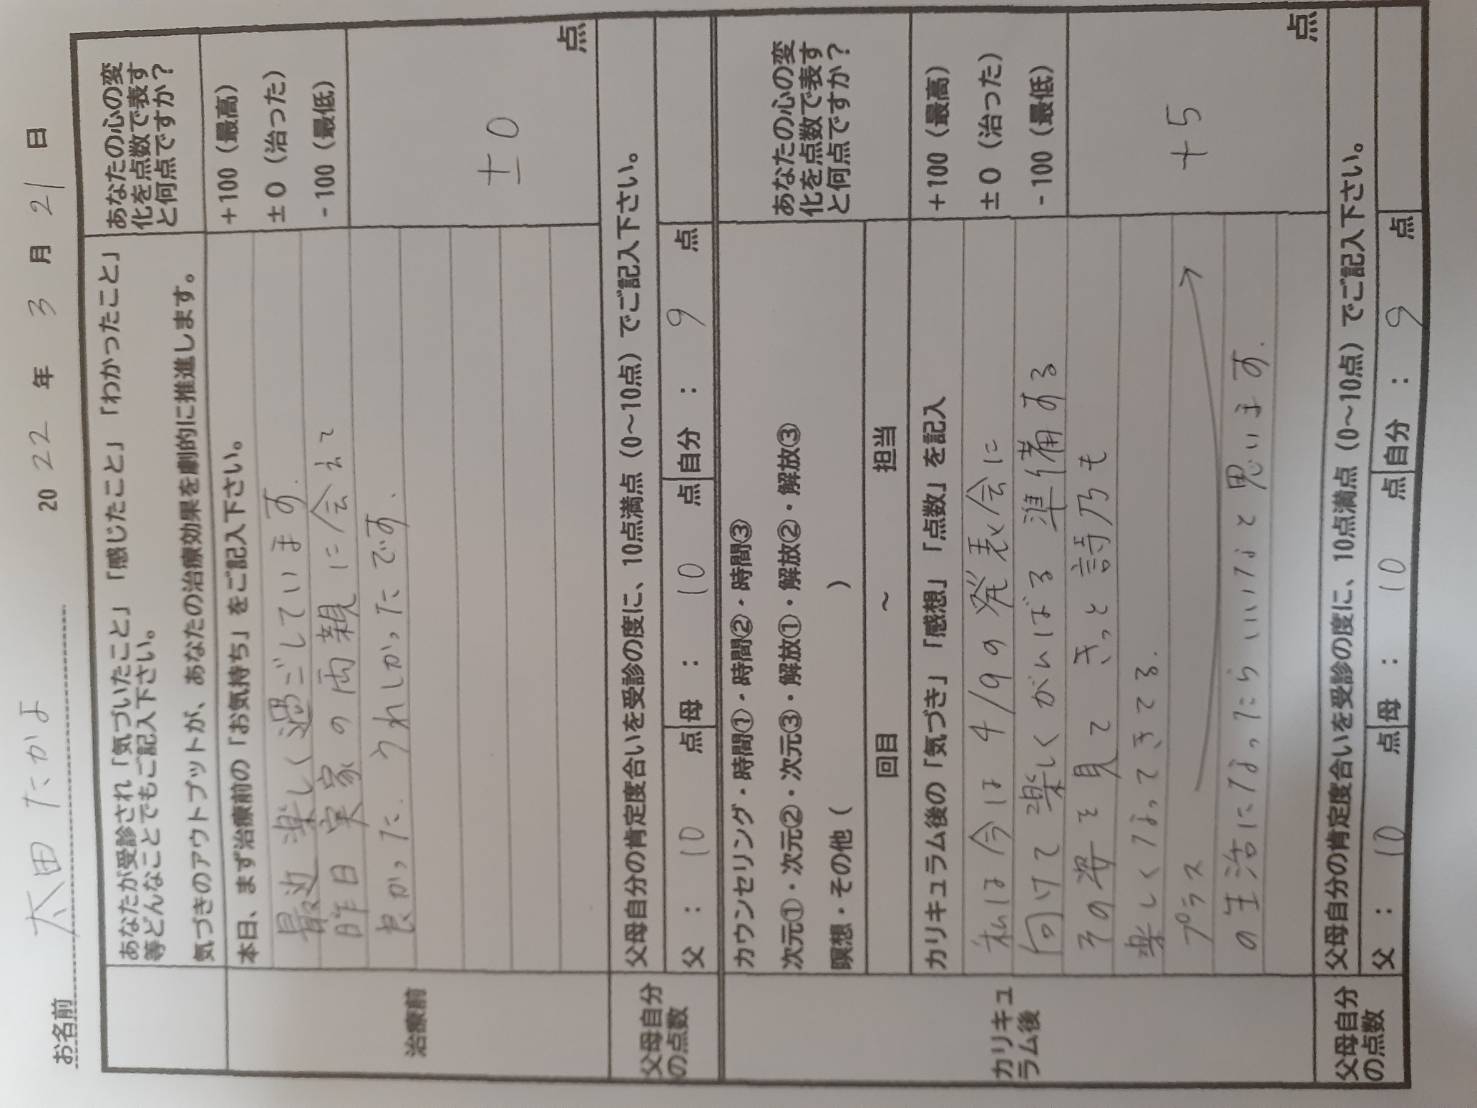 お名前 太田 たかよ 2022年 3月 21日
あなたが受診され「気づいたこと」「感じたこと」「わかったこと」
等どんなことでもご記入下さい。
気づきのアウトプットが、あなたの治療効果を劇的に推進します。
あなたの心の変
化を点数で表す
と何点ですか？
治療前
本日、まず治療前の「お気持ち」をご記入下さい。
最近 楽しく過ごしています.
昨日 実家の両親に会えて
良かった. うれしかったです.
+100（最高）
±0（治った）
-100（最低）
±0 点
父母自分
の点数
父母自分の肯定度合いを受診の度に、10点満点（0～10点）でご記入下さい。
父 ： 10 点 母 ： 10 点 自分 ： 9 点
カリキュ
ラム後
カウンセリング・時間①・時間②・時間③
次元①・次元②・次元③・解放①・解放②・解放③
瞑想・その他（ ）
回目 ～ 担当
あなたの心の変
化を点数で表す
と何点ですか？
カリキュラム後の「気づき」「感想」「点数」を記入
私は今は 4/9の発表会に
向けて 楽しくがんばる 準備する
その姿を見て きっと 詩乃も
楽しくなってきてる.
プラス
の生活になったらいいなと思います.
+100（最高）
±0（治った）
-100（最低）
+5 点
父母自分
の点数
父母自分の肯定度合いを受診の度に、10点満点（0～10点）でご記入下さい。
父 ： 10 点 母 ： 10 点 自分 ： 9 点